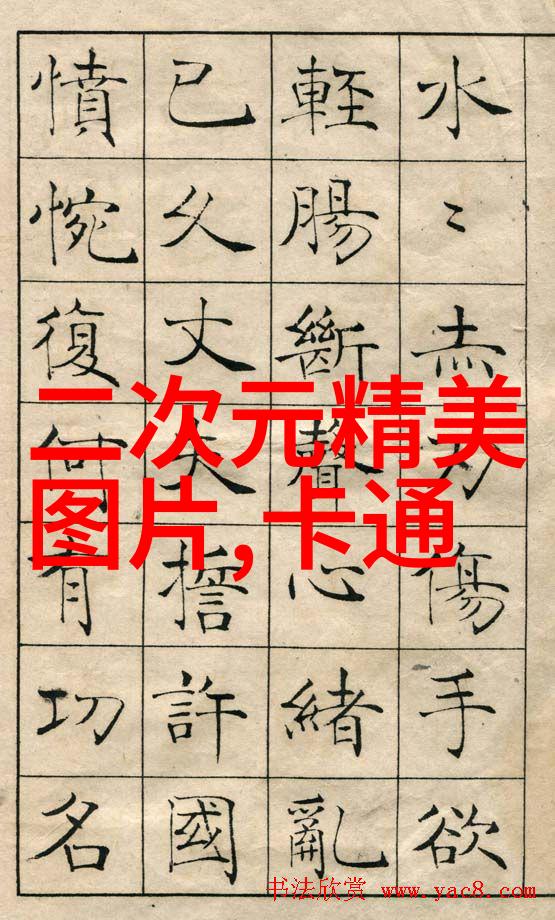 水〻赤刃傷手欲
輕腸斷聲心緒亂
已久丈夫誓許國
憤惋復何有功名
二次元精美
图片,卡通
书法欣赏 www.yac8.com